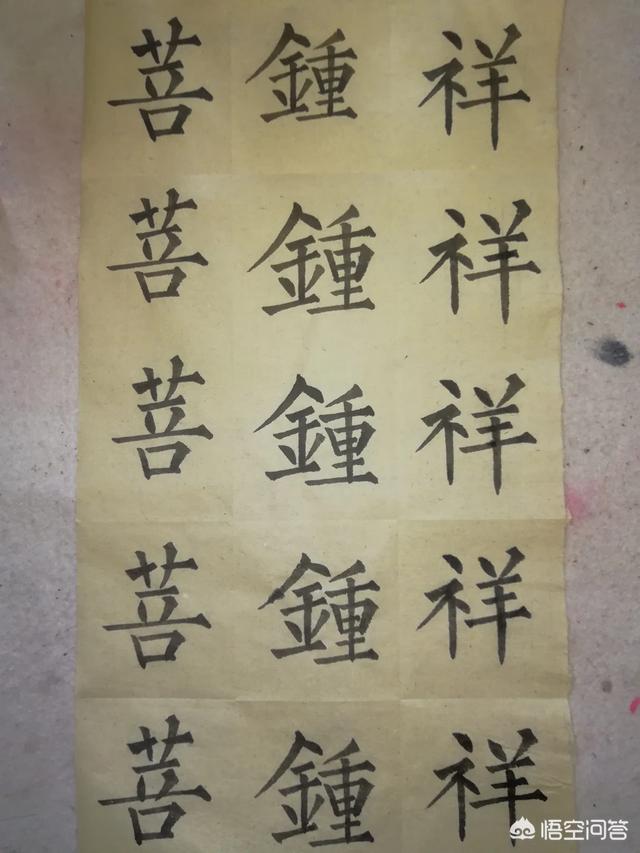 祥祥祥祥祥
鍾鍾鍾鍾鍾
菩菩菩菩菩
悟空问答